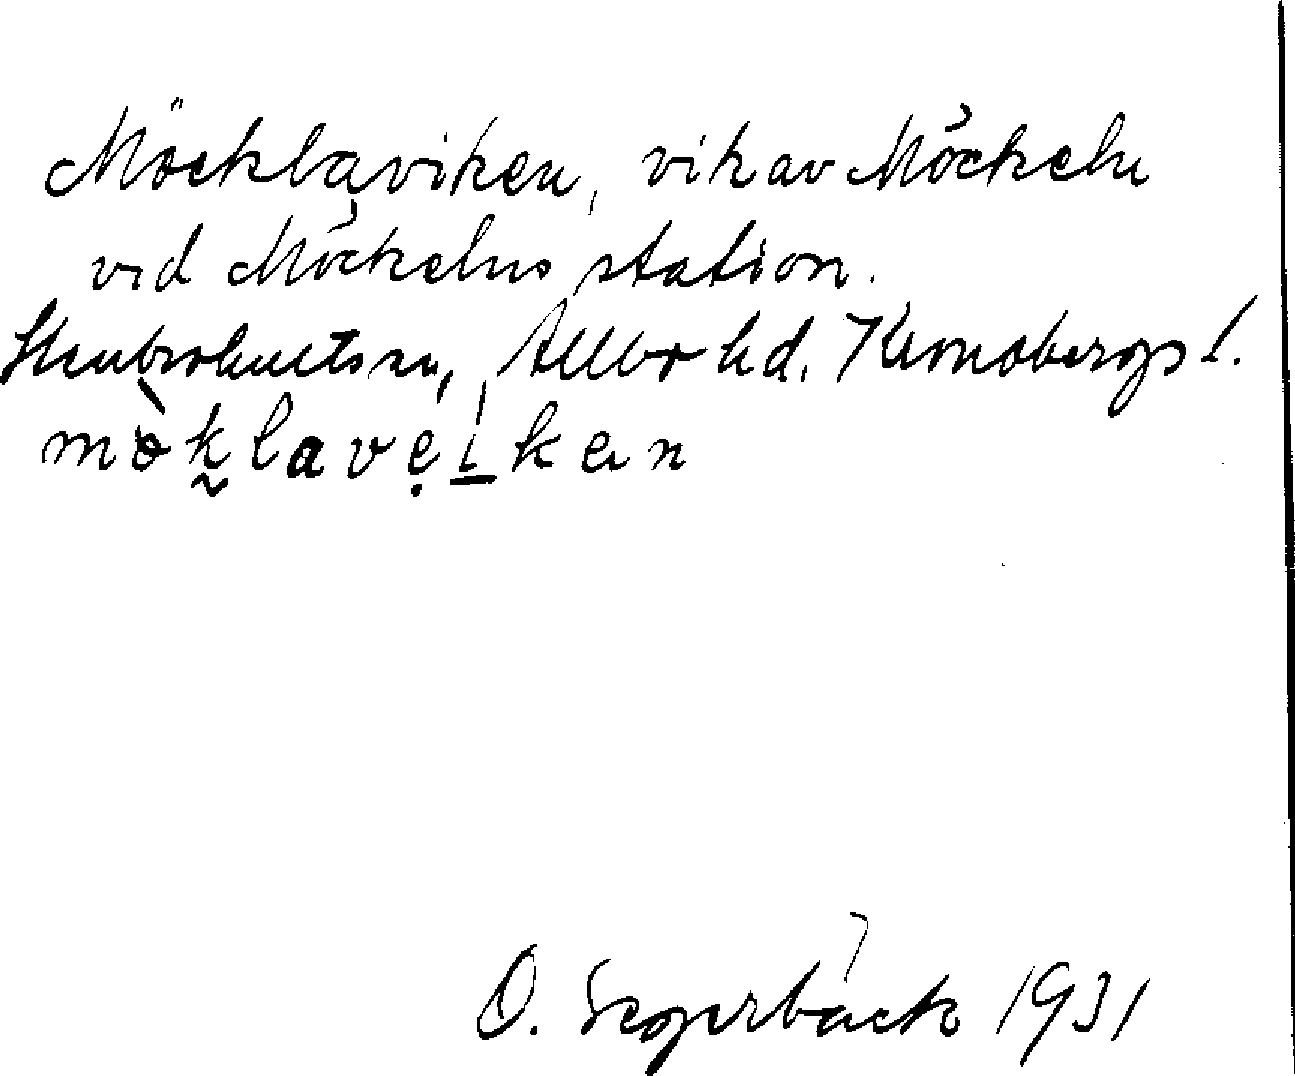 Möcklaviken, vik av Möckeln
vid Möckelns station.
Stenbrohults sn, Allbo hd. Kronobergs l.
mò̀k̰lavẹi̲ken
O. Segerbäck 1931